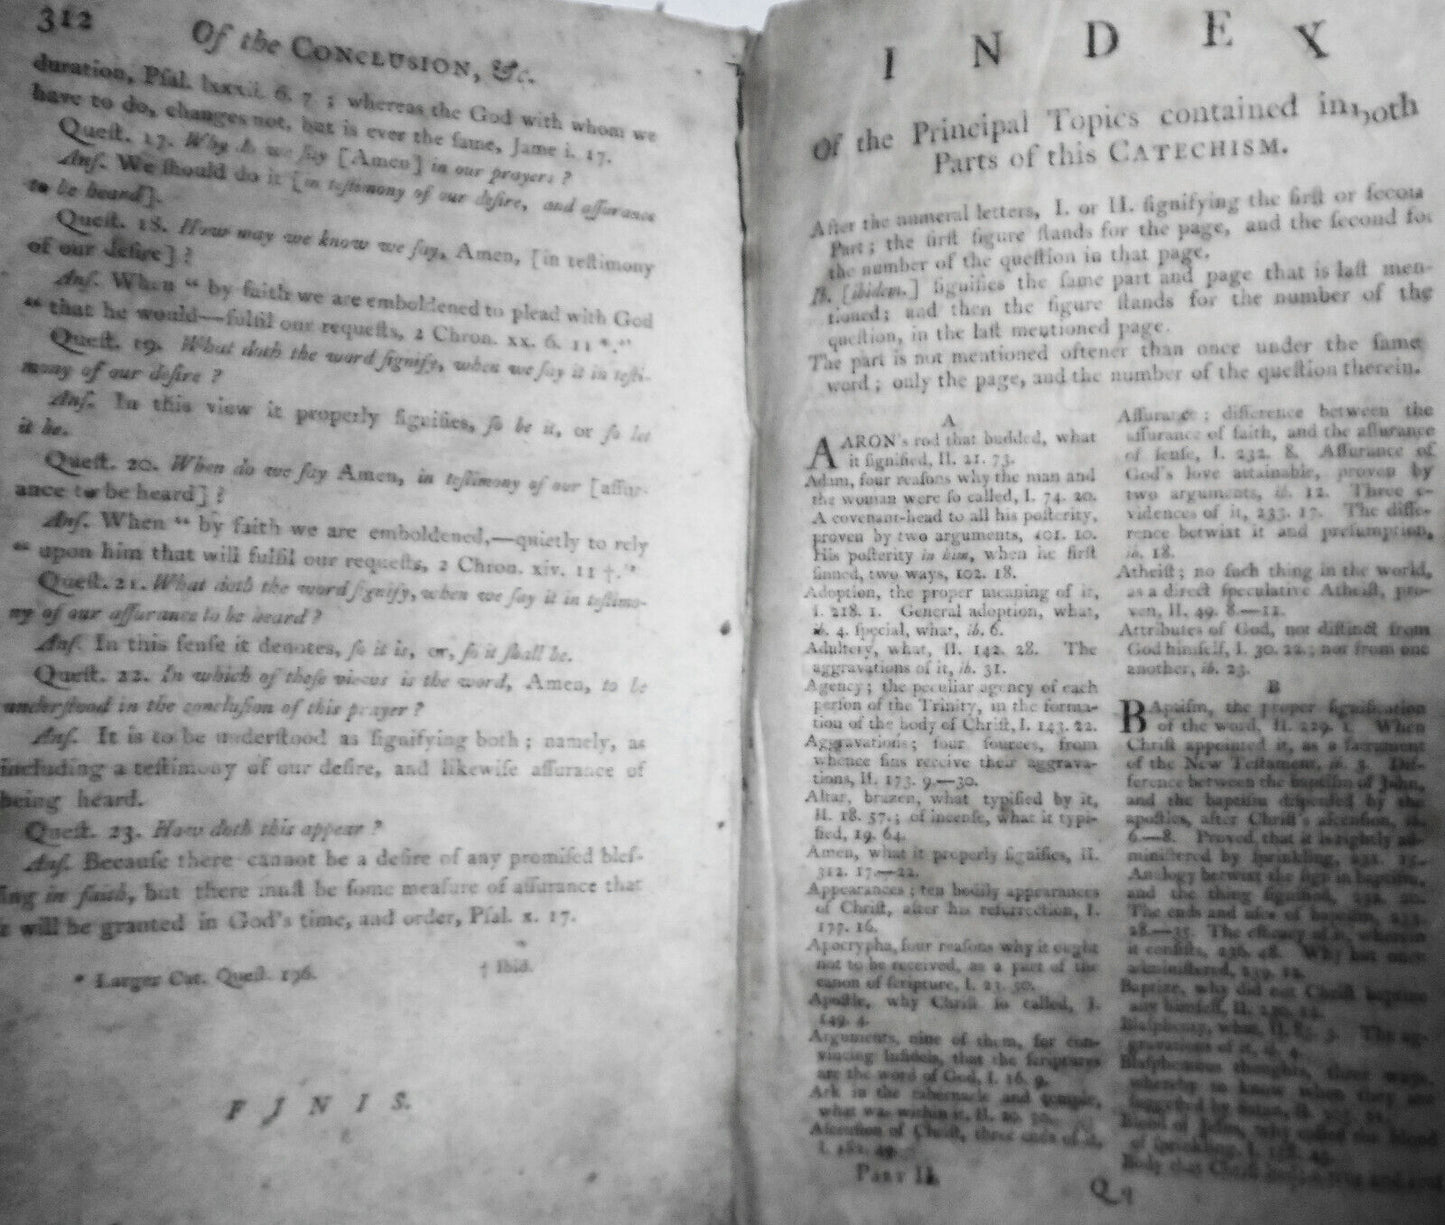 312
Of the CONCLUSION, &c.
duration, Pſal. lxxxii. 6. 7 ; whereas the God with whom we
have to do, changes not, but is ever the ſame, Jame i. 17.
Queſt. 17. Why do we ſay [Amen] in our prayers ?
Anſ. We ſhould do it [in teſtimony of our deſire, and aſſurance
to be heard].
Queſt. 18. How may we know we ſay, Amen, [in teſtimony
of our deſire] ?
Anſ. When “ by faith we are emboldened to plead with God
“ that he would—fulfil our requeſts, 2 Chron. xx. 6. 11 *.”
Queſt. 19. What doth the word ſignify, when we ſay it in teſti-
mony of our deſire ?
Anſ. In this view it properly ſignifies, ſo be it, or ſo let
it be.
Queſt. 20. When do we ſay Amen, in teſtimony of our [aſſur-
ance to be heard] ?
Anſ. When “ by faith we are emboldened,—quietly to rely
“ upon him that will fulfil our requeſts, 2 Chron. xiv. 11 †.”
Queſt. 21. What doth the word ſignify, when we ſay it in teſtimo-
ny of our aſſurance to be heard ?
Anſ. In this ſenſe it denotes, ſo it is, or, ſo it ſhall be.
Queſt. 22. In which of theſe views is the word, Amen, to be
underſtood in the concluſion of this prayer ?
Anſ. It is to be underſtood as ſignifying both ; namely, as
including a teſtimony of our deſire, and likewiſe aſſurance of
being heard.
Queſt. 23. How doth this appear ?
Anſ. Becauſe there cannot be a deſire of any promiſed bleſ-
ſing in faith, but there muſt be ſome meaſure of aſſurance that
it will be granted in God's time, and order, Pſal. x. 17.
* Larger Cat. Queſt. 196.
† Ibid.
F I N I S.
I N D E X
Of the Principal Topics contained in both
Parts of this CATECHISM.
After the numeral letters, I. or II. ſignifying the firſt or ſecon
Part ; the firſt figure ſtands for the page, and the ſecond for
the number of the queſtion in that page.
Ib. [ibidem.] ſignifies the ſame part and page that is laſt men-
tioned ; and then the figure ſtands for the number of the
queſtion, in the laſt mentioned page.
The part is not mentioned oftener than once under the ſame
word ; only the page, and the number of the queſtion therein.
A
AARON's rod that budded, what
it ſignified, II. 21. 73.
Adam, four reaſons why the man and
the woman were ſo called, I. 74. 20.
A covenant-head to all his poſterity,
proven by two arguments, 101. 10.
His poſterity in him, when he firſt
ſinned, two ways, 102. 18.
Adoption, the proper meaning of it,
I. 218. 1. General adoption, what,
ib. 4. ſpecial, what, ib. 6.
Adultery, what, II. 142. 28. The
aggravations of it, ib. 31.
Agency ; the peculiar agency of each
perſon of the Trinity, in the forma-
tion of the body of Chriſt, I. 143. 22.
Aggravations ; four ſources, from
whence ſins receive their aggrava-
tions, II. 173. 9.—30.
Altar, brazen, what typified by it,
II. 18. 57. ; of incenſe, what it typi-
fied, 19. 64.
Amen, what it properly ſignifies, II.
312. 17.—22.
Appearances ; ten bodily appearances
of Chriſt, after his reſurrection, I.
177. 16.
Apocrypha, four reaſons why it ought
not to be received, as a part of the
canon of ſcripture, I. 23. 50.
Apoſtle, why Chriſt ſo called, I.
149. 4.
Arguments, nine of them, for con-
vincing Infidels, that the ſcriptures
are the word of God, I. 16. 9.
Ark in the tabernacle and temple,
what was within it, II. 20.
Aſcenſion of Chriſt, three ends of it,
I. 182. 49.
PART II.
Aſſurance ; difference between the
aſſurance of faith, and the aſſurance
of ſenſe, I. 232. 8. Aſſurance of
God's love attainable, proven by
two arguments, ib. 12. Three e-
vidences of it, 233. 17. The diffe-
rence betwixt it and preſumption,
ib. 18.
Atheiſt ; no ſuch thing in the world,
as a direct ſpeculative Atheiſt, pro-
ven, II. 49. 8.—11.
Attributes of God, not diſtinct from
God himſelf, I. 30. 22. ; nor from one
another, ib. 23.
B
BAptiſm, the proper ſignification
of the word, II. 229. 1. When
Chriſt appointed it, as a ſacrament
of the New Teſtament, ib. 3. Dif-
ference between the baptiſm of John,
and the baptiſm diſpenſed by the
apoſtles, after Chriſt's aſcenſion, ib.
6.—8. Proved, that it is rightly ad-
miniſtered by ſprinkling, 231. 15.
Analogy betwixt the ſign in baptiſm,
and the thing ſignified, 232. 20.
The ends and uſes of baptiſm, 233.
28.—35. The efficacy of it, wherein
it conſiſts, 236. 48. Why but once
adminiſtered, 239.
Baptize, why did not Chriſt baptize
any himſelf, II. 230. 12.
Blaſphemy, what, II. 85. 3. The ag-
gravations of it, ib. 4.
Blaſphemous thoughts, three ways,
whereby to know when they are
ſuggeſted by Satan,
Blood of Jeſus, why called the blood
of ſprinkling, I. 158. 45.
Body that Chriſt
Q q